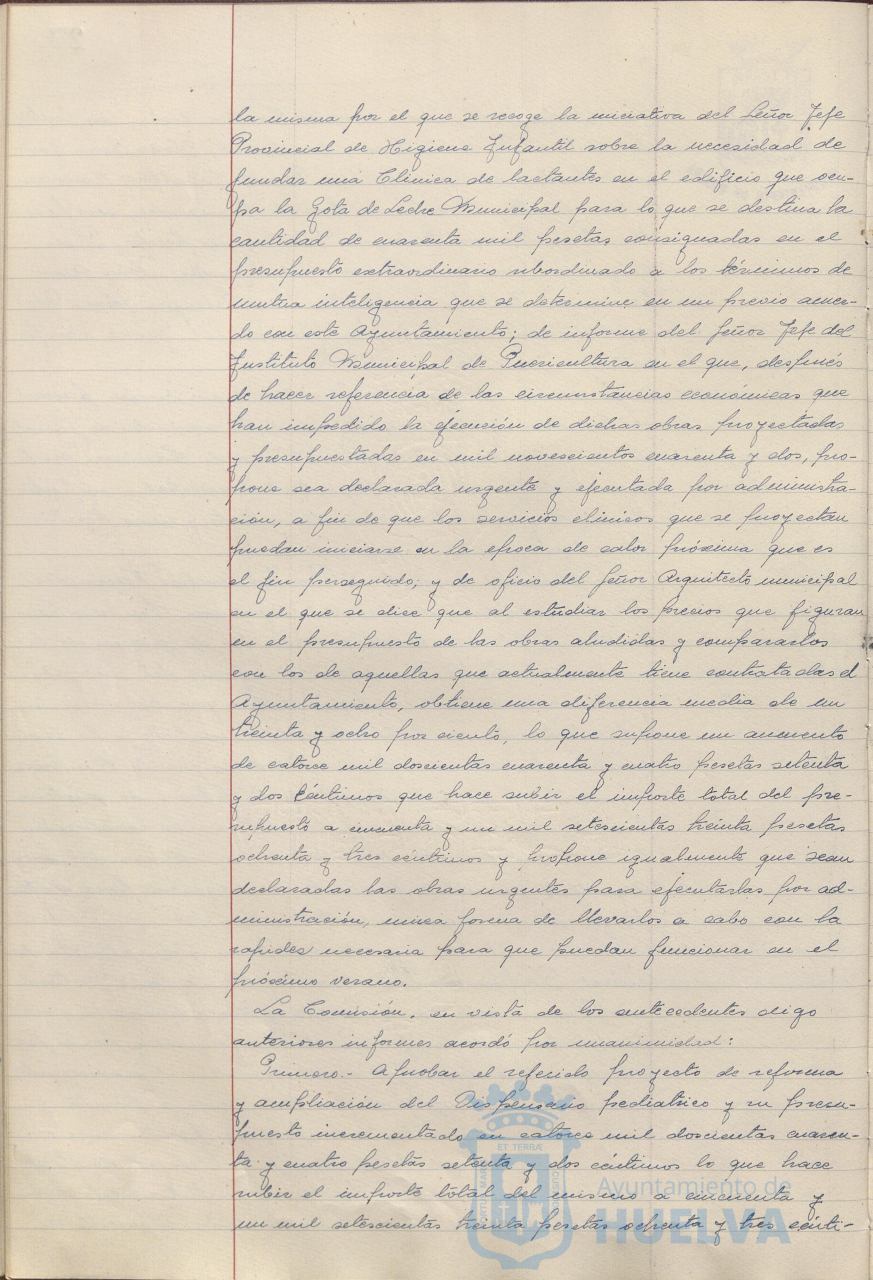 la misma por el que se recoge la iniciativa del Señor Jefe
Provincial de Higiene Infantil sobre la necesidad de
fundar una Clínica de lactantes en el edificio que ocu-
pa la Gota de Leche Municipal para lo que se destina la
cantidad de cuarenta mil pesetas consignadas en el
presupuesto extraordinario subordinado a los términos de
mutua inteligencia que se determine en un previo acuer-
do con este Ayuntamiento; de informe del Señor Jefe del
Instituto Municipal de Puericultura en el que, después
de hacer referencia de las circunstancias económicas que
han impedido la ejecución de dichas obras proyectadas
y presupuestadas en mil novescientos cuarenta y dos, pro-
pone sea declarada urgente y ejecutada por administra-
ción, a fin de que los servicios clínicos que se proyectan
puedan iniciarse en la epoca de calor próxima que es
el fin perseguido; y de oficio del Señor Arquitecto municipal
en el que se dice que al estudiar los precios que figuran
en el presupuesto de las obras aludidas y compararlos
con los de aquellas que actualmente tiene contratadas el
Ayuntamiento, obtiene una diferencia media de un
treinta y ocho por ciento, lo que supone un aumento
de catorce mil doscientas cuarenta y cuatro pesetas setenta
y dos céntimos que hace subir el importe total del pre-
supuesto a cincuenta y un mil setescientas treinta pesetas
ochenta y tres céntimos y propone igualmente que sean
declaradas las obras urgentes para ejecutarlas por ad-
ministración, unica forma de llevarlos a cabo con la
rapidez necesaria para que puedan funcionar en el
próximo verano.
La Comisión, en vista de los antecedentes digo
anteriores informes acordó por unanimidad:
Primero.- Aprobar el referido proyecto de reforma
y ampliación del Dispensario pediatrico y su presu-
puesto incrementado en catorce mil doscientas cuaren-
ta y cuatro pesetas setenta y dos céntimos lo que hace
subir el importe total del mismo a cincuenta y
un mil setescientas treinta pesetas ochenta y tres cénti-
ET TERRÆ
Ayuntamiento de
HUELVA